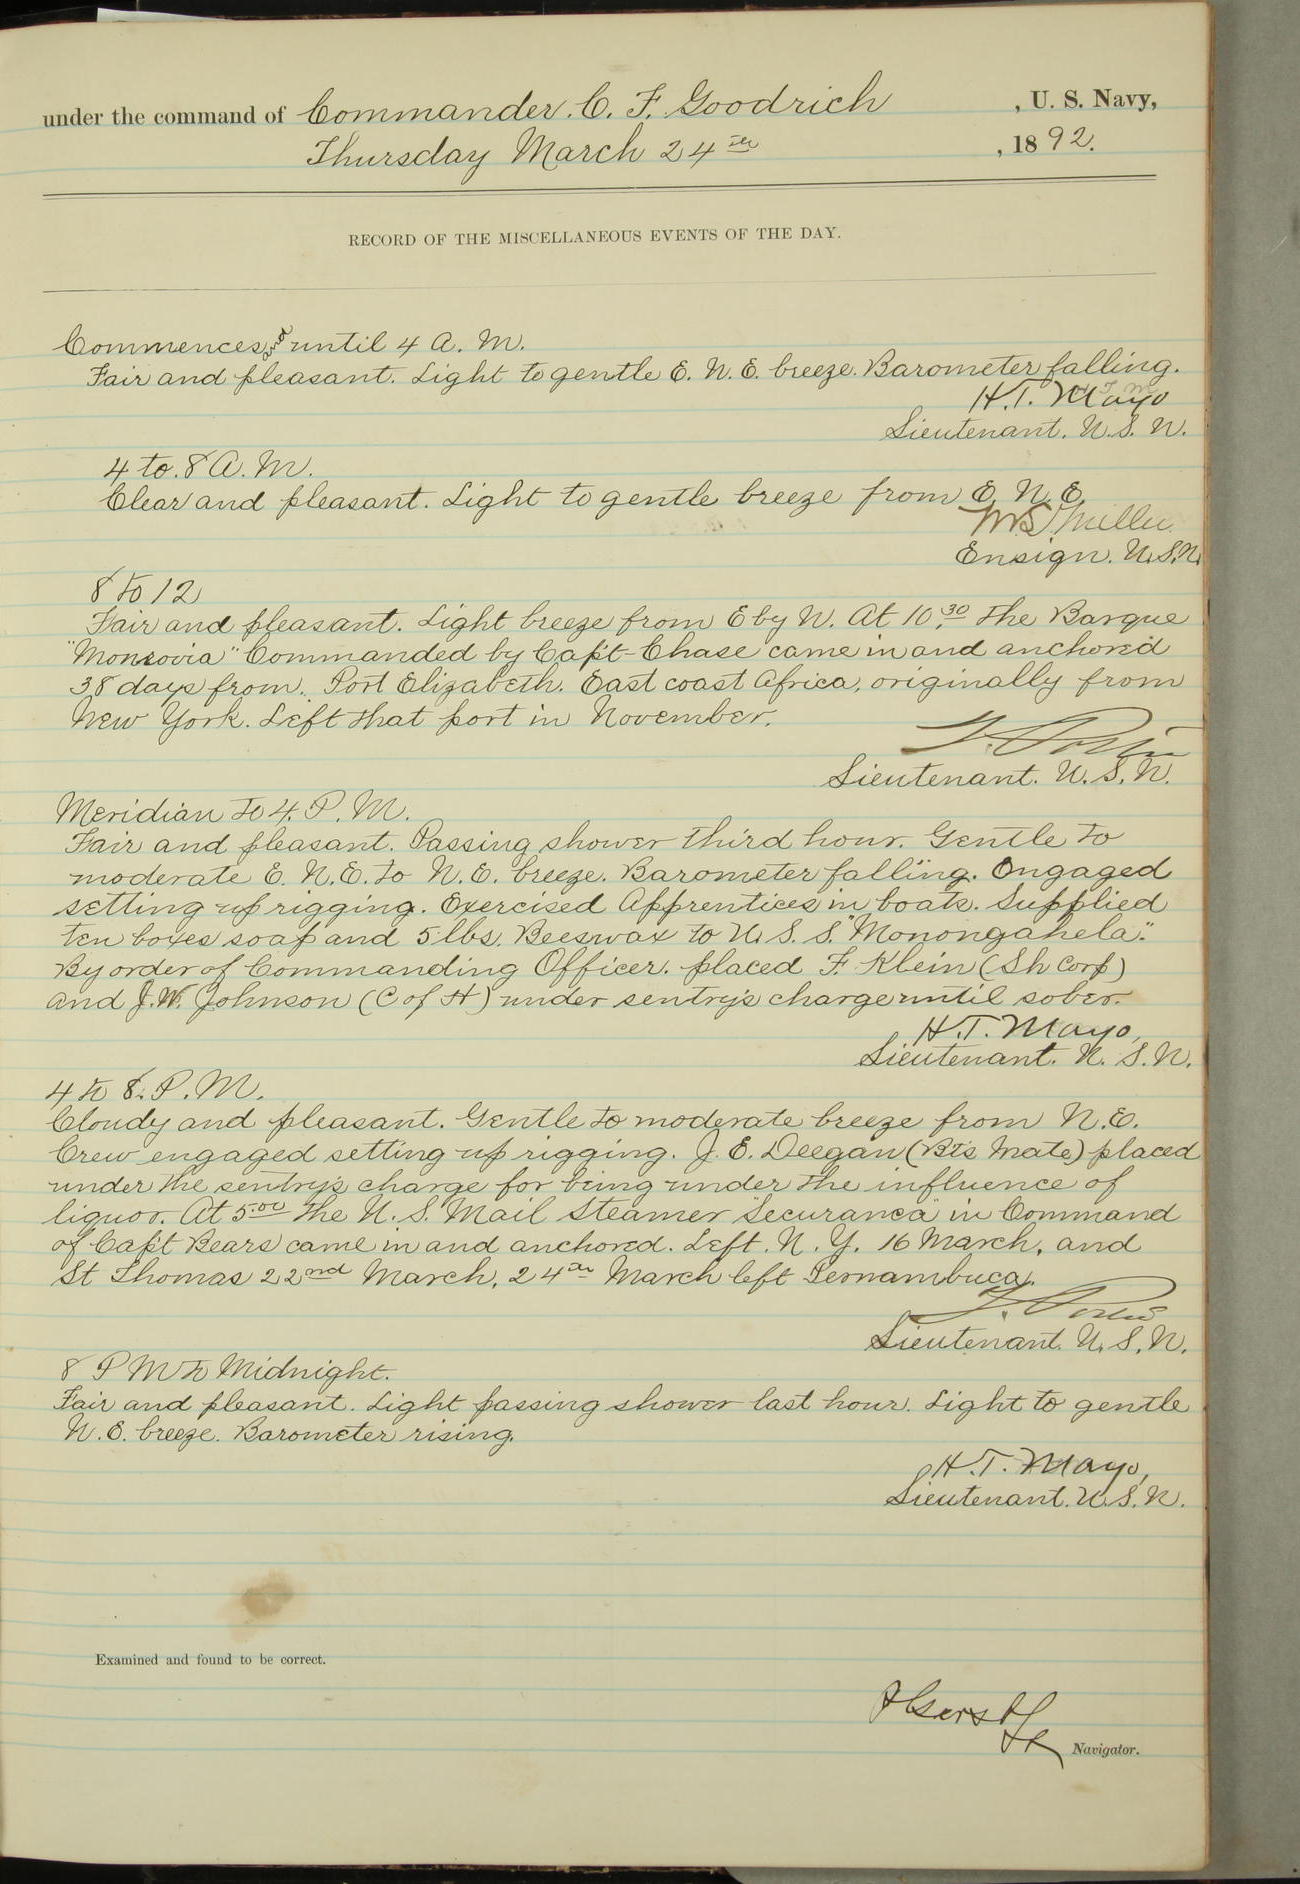 under the command of Commander. C. F. Goodrich , U. S. Navy,
Thursday March 24th , 1892.
RECORD OF THE MISCELLANEOUS EVENTS OF THE DAY.
Commences and until 4 A. M.
Fair and pleasant. Light to gentle E. N. E. breeze. Barometer falling.
H. T. Mayo
Lieutenant. U. S. N.
4 to. 8 A. M.
Clear and pleasant. Light to gentle breeze from E. N. E.
Ensign. U.S.N.
8 to 12
Fair and pleasant. Light breeze from E by N. At 10.30 the Barque
"Monrovia" Commanded by Capt-Chase came in and anchored
38 days from. Port Elizabeth. East coast Africa, originally from
New York. Left that port in November.
Lieutenant. U. S. N.
Meridian to 4. P. M.
Fair and pleasant. Passing shower third hour. Gentle to
moderate E. N. E. to N. E. breeze. Barometer falling. Engaged
setting up rigging. Exercised Apprentices in boats. Supplied
ten boxes soap and 5 lbs. Beeswax to U. S. S. "Monongahela".
By order of Commanding Officer. placed F. Klein (Sh Corp)
and J. W. Johnson (C of H) under sentry's charge until sober.
H. T. Mayo,
Lieutenant. U. S. N.
4 to 8. P. M.
Cloudy and pleasant. Gentle to moderate breeze from N. E.
Crew engaged setting up rigging. J. E. Deegan (Bts Mate) placed
under the sentry's charge for being under the influence of
liquor. At 5.00 the U. S. Mail Steamer "Securanca" in Command
of Capt Bears came in and anchored. Left. N. Y. 16 March, and
St Thomas 22nd March, 24th March left Pernambuca.
Lieutenant. U. S. N.
8 P M to Midnight.
Fair and pleasant. Light passing shower last hour. Light to gentle
N. E. breeze. Barometer rising.
H. T. Mayo,
Lieutenant. U. S. N.
Examined and found to be correct.
Navigator.